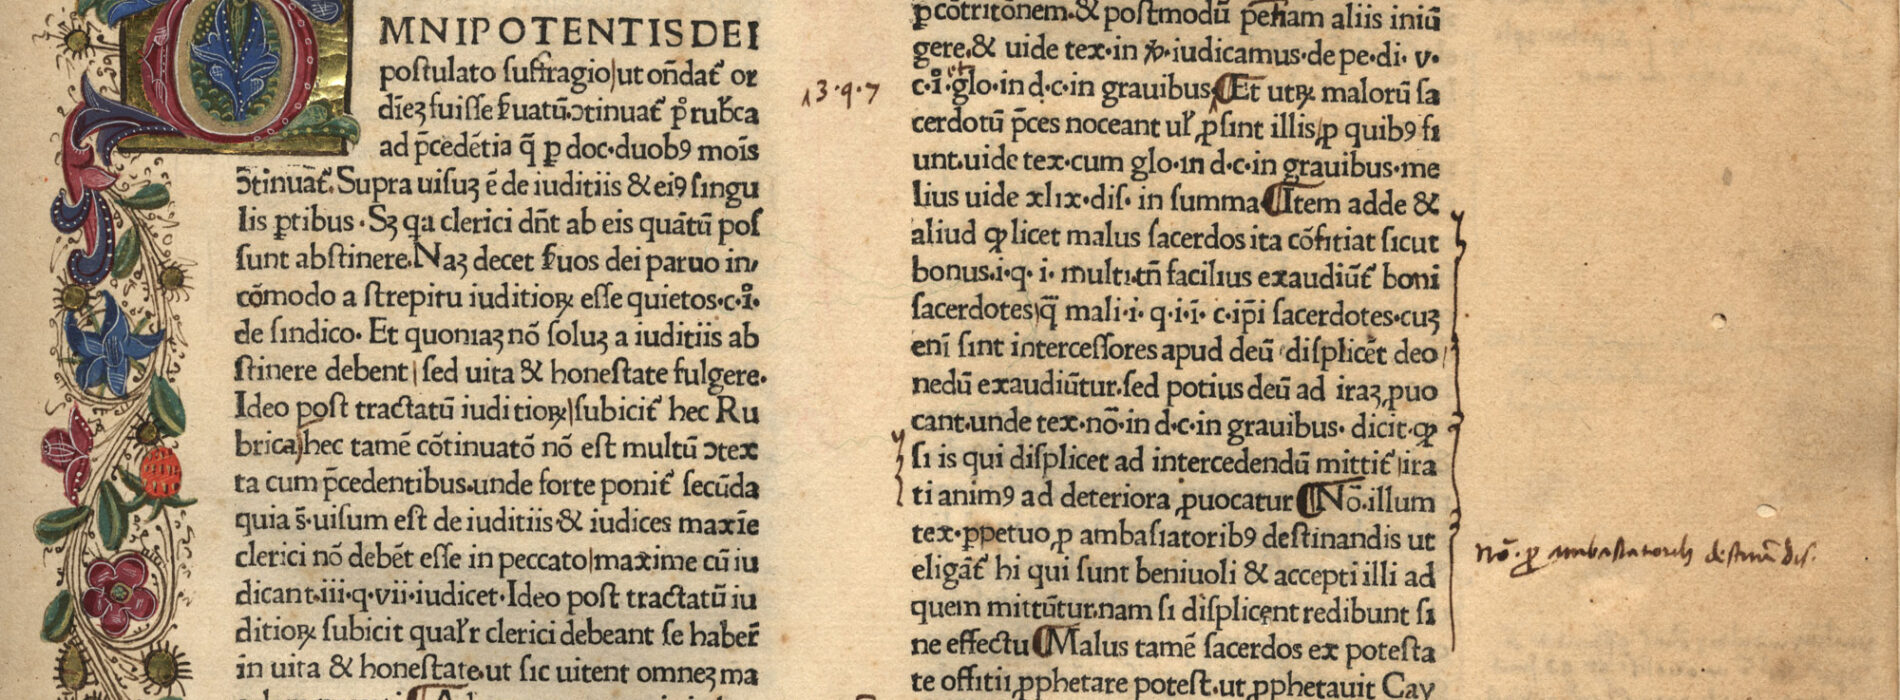 OMNIPOTENTIS DEI
postulato suffragio ut oñdat᷑ or
diēꝫ fuisse ẜuatū ↄtinuat᷑ pͦ rubᷓca
ad p̄cedētia q̄ ꝑ doc·duobꝰ mois̄
ↄ̄tinuat᷑. Supra uisuꝫ ē de iuditiis & eiꝰ singu
lis ꝑtibus · Sꝫ qa clerici dn̄t ab eis quātū pos
sunt abstinere. Naꝫ decet ẜuos dei paruo in,
cōmodo a strepitu iuditioꝝ esse quietos·c·i̊·
de sindico· Et quoniaꝫ nō soluꝫ a iuditiis ab
stinere debent sed uita & honestate fulgere·
Ideo post tractatū iuditioꝝ subicit᷑ hec Ru
brica hec tamē cōtinuatō nō est multū ↄtex
ta cum p̄cedentibus·unde forte ponit᷑ secūda
quia s̄·uisum est de iuditiis & iudices maxīe
clerici nō debēt esse in peccato maxime cū iu
dicant·iii·q·vii·iudicet·Ideo post tractatū iu
ditioꝝ subicit qualr̄ clerici debeant se haber̄
in uita & honestate·ut sic uitent omneꝫ ma
13·9·7
ꝑ cōtritōnem·& postmodū peñam aliis iniū
gere·& uide tex·in iudicamus·de pe·di·v·
c·i̊·glo·in d·c·in grauibus· Et utꝝ malorū sa
cerdotū p̄ces noceant ul̄ ꝓsint illis ꝓ quibꝰ fi
unt·uide tex·cum glo·in d·c·in grauibus·me
lius uide xlix·dis· in summa Item adde &
aliud ꝙ licet malus sacerdos ita cōfitiat sicut
bonus·i·q·i·multi·tn̄ facilius exaudiūt᷑ boni
sacerdotes q̄ȝ mali·i·q·i·i· c·ip̄i sacerdotes·cuꝫ
enī sint intercessores apud deū displicēt deo
nedū exaudiūtur·sed potius deū ad iraꝫ ꝓuo
cant·unde tex·nō·in d·c·in grauibus· dicit·ꝙ
si is qui displicet ad intercedendū mittit᷑ ira
ti animꝰ ad deteriora ꝓuocatur Nō·illum
tex·ꝑpetuo ꝓ ambasiatoribꝰ destinandis ut
eligāt᷑ hi qui sunt beniuoli & accepti illi ad
quem mittūtur·nam si displicent redibunt si
ne effectu Malus tamē sacerdos ex potesta
te offitii ꝓphetare potest·ut ꝓphetauit Cay
nō· ꝓ ambasiatorib